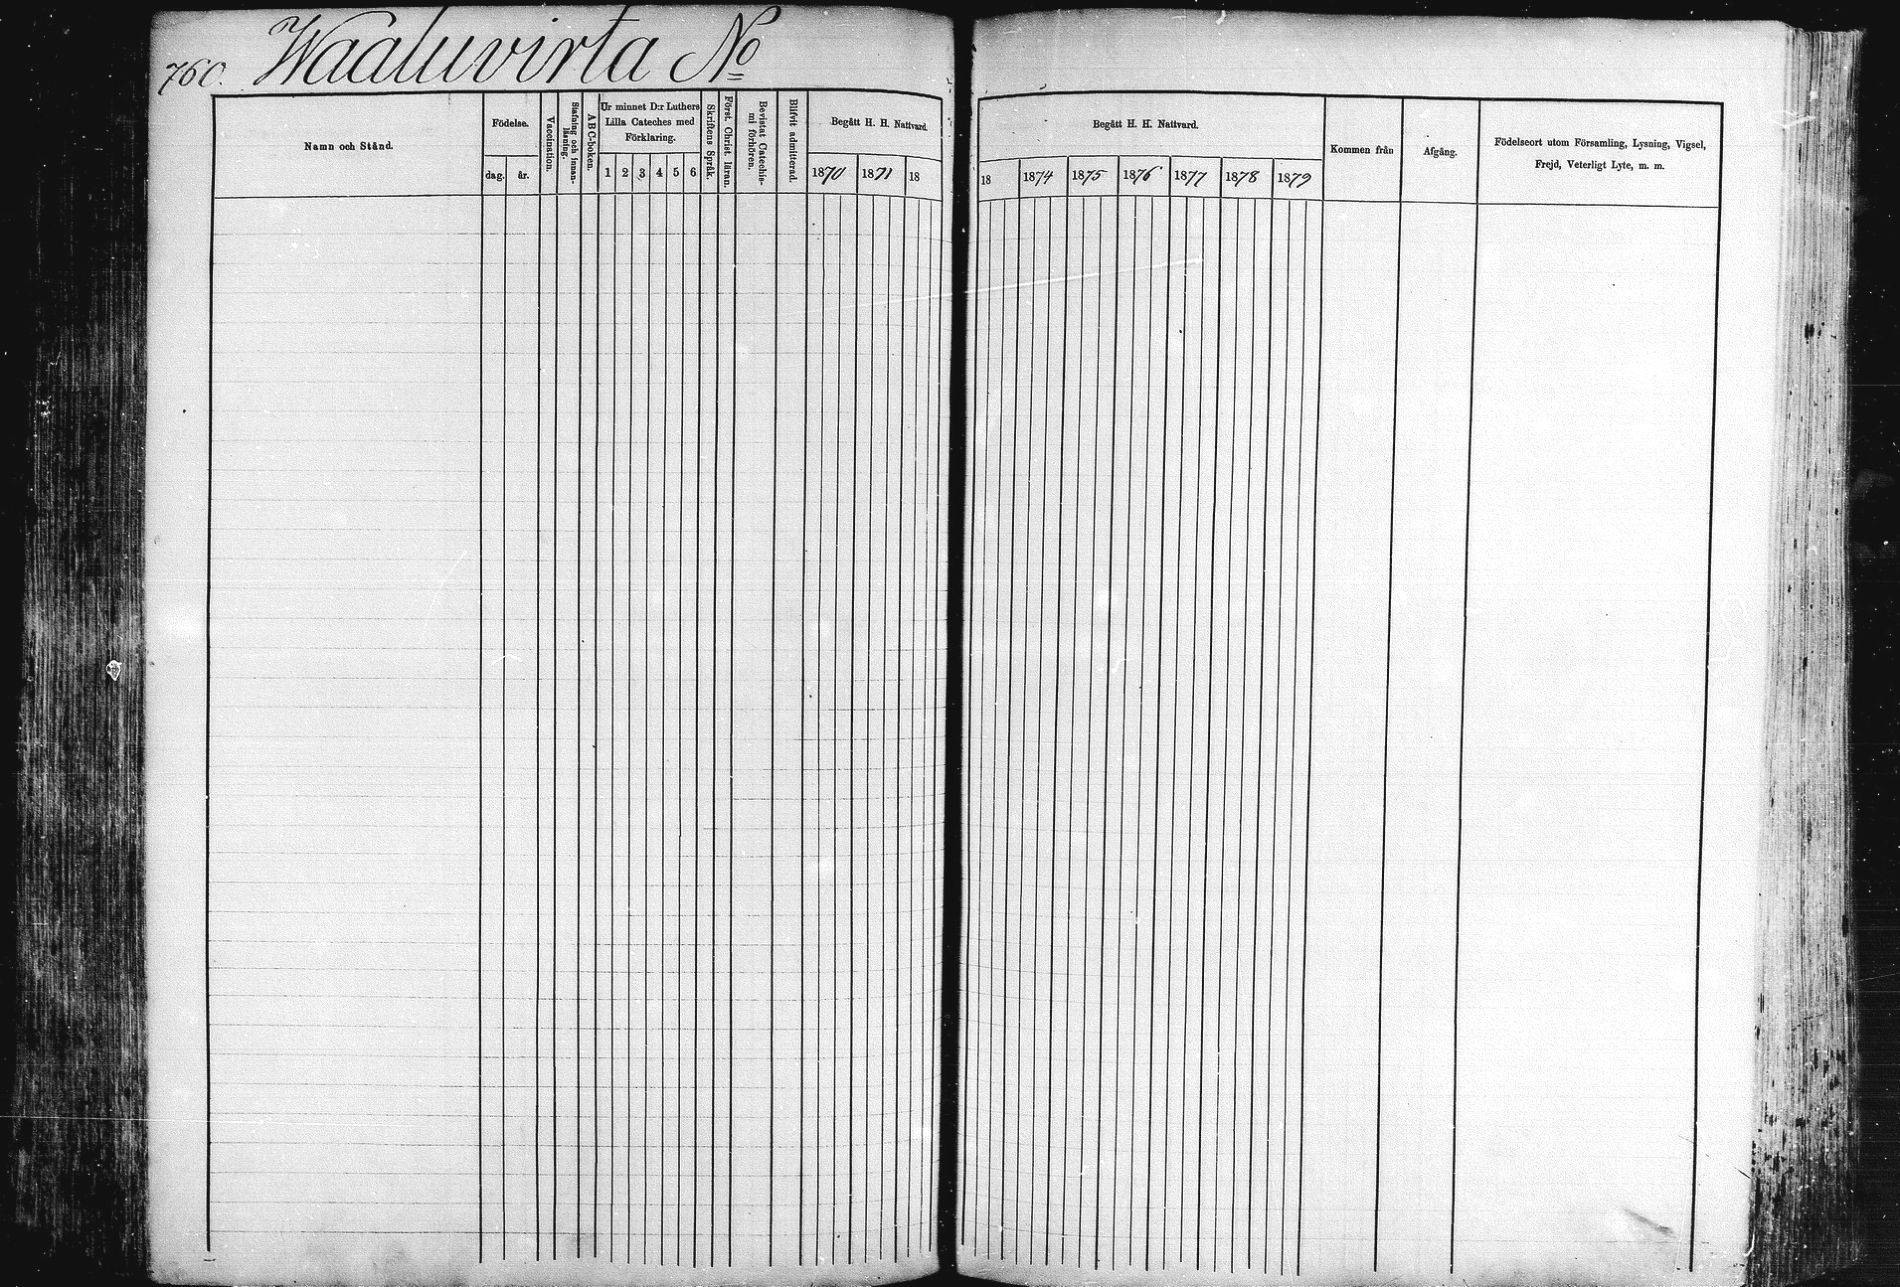 760. Waaluvirta No
Namn och Stånd.
Födelse.
dag. år.
Vaccination.
Stafning och innan-
läsning.
A B C-boken.
Ur minnet D:r Luthers
Lilla Cateches med
Förklaring.
1 2 3 4 5 6
Skriftens Språk.
Först. Christ. läran.
Bevistat Catechis-
mi förhören.
Blifvit admitterad.
Begått H. H. Nattvard.
1870 1871 18
Begått H. H. Nattvard.
18 1874 1875 1876 1877 1878 1879
Kommen från
Afgång.
Födelseort utom Församling, Lysning, Vigsel,
Frejd, Veterligt Lyte, m. m.